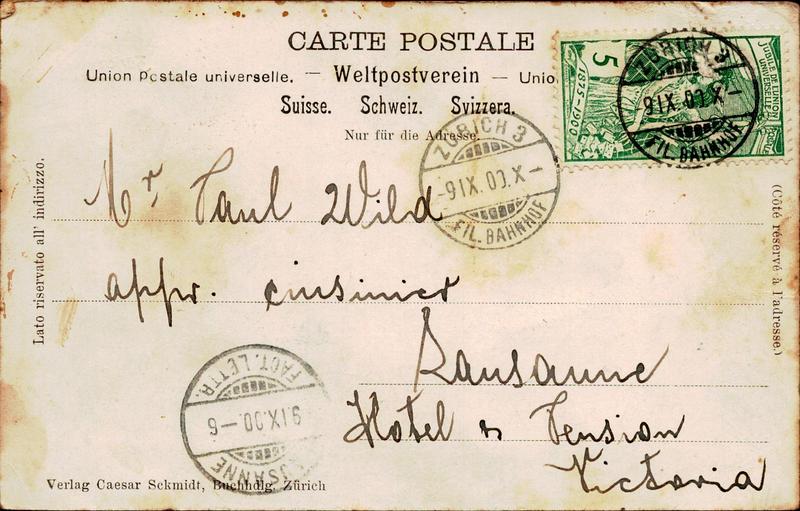 CARTE POSTALE
Union Postale universelle. — Weltpostverein — Unio
Suisse. Schweiz. Svizzera.
Nur für die Adresse.
5
1875-1900
JUBILÉ DE L'UNION
UNIVERSELLE
ZÜRICH 3
-9.IX.00.X-
FIL. BAHNHOF
ZÜRICH 3
-9.IX.00.X-
FIL. BAHNHOF
Lato riservato all' indirizzo.
(Côté réservé à l'adresse.)
Mr Paul Wild
appr. cuisinier
Lausanne
Hotel & Pension
Victoria
USANNE
9.IX.00.-6
FACT. LETTR.
Verlag Caesar Sckmidt, Buchhdlg, Zürich